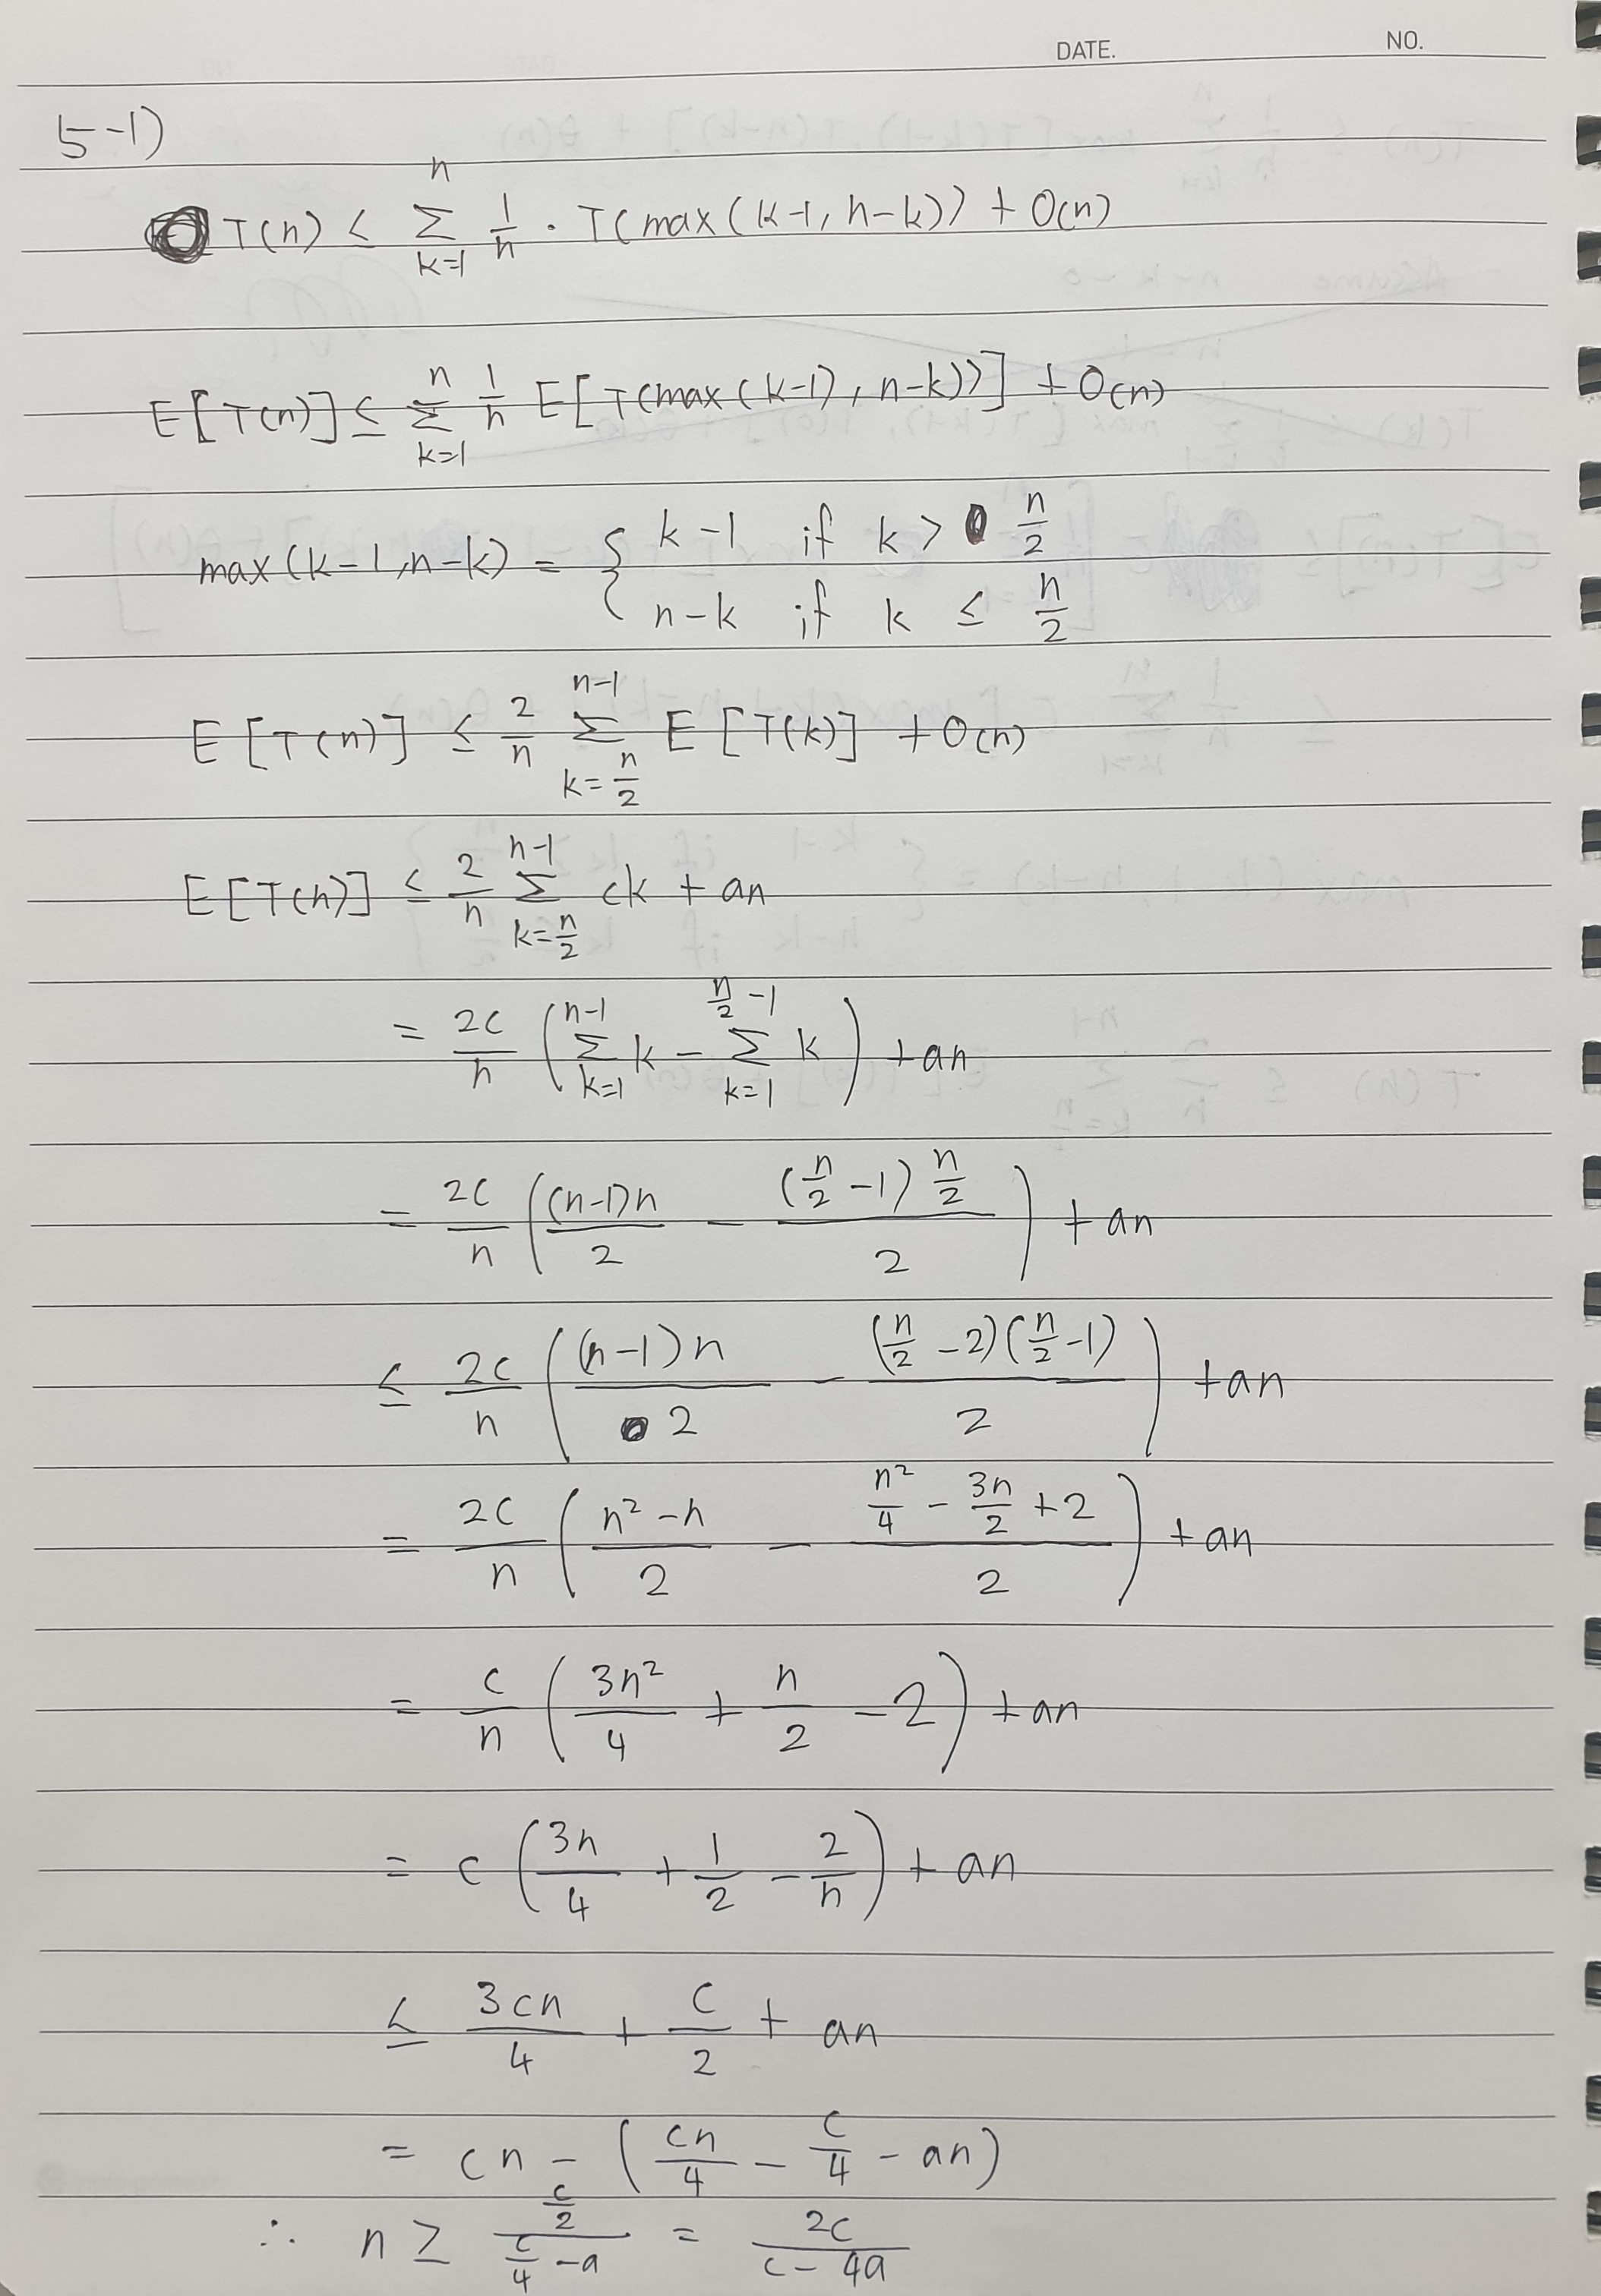 DATE. NO.
5-1)
T(n) ≤ \sum_{k=1}^{n} \frac{1}{n} · T(max(k-1, n-k)) + O(n)
E[T(n)] ≤ \sum_{k=1}^{n} \frac{1}{n} E[T(max(k-1), n-k))] + O(n)
max(k-1, n-k) = { k-1 if k > \frac{n}{2}
n-k if k ≤ \frac{n}{2}
E[T(n)] ≤ \frac{2}{n} \sum_{k=\frac{n}{2}}^{n-1} E[T(k)] + O(n)
E[T(n)] ≤ \frac{2}{n} \sum_{k=\frac{n}{2}}^{n-1} ck + an
= \frac{2c}{n} ( \sum_{k=1}^{n-1} k - \sum_{k=1}^{\frac{n}{2}-1} k ) + an
= \frac{2c}{n} ( \frac{(n-1)n}{2} - \frac{(\frac{n}{2}-1)\frac{n}{2}}{2} ) + an
≤ \frac{2c}{n} ( \frac{(n-1)n}{2} - \frac{(\frac{n}{2}-2)(\frac{n}{2}-1)}{2} ) + an
= \frac{2c}{n} ( \frac{n^2-n}{2} - \frac{\frac{n^2}{4} - \frac{3n}{2} + 2}{2} ) + an
= \frac{c}{n} ( \frac{3n^2}{4} + \frac{n}{2} - 2 ) + an
= c ( \frac{3n}{4} + \frac{1}{2} - \frac{2}{n} ) + an
≤ \frac{3cn}{4} + \frac{c}{2} + an
= cn - ( \frac{cn}{4} - \frac{c}{4} - an )
∴ n ≥ \frac{\frac{c}{2}}{\frac{c}{4} - a} = \frac{2c}{c-4a}